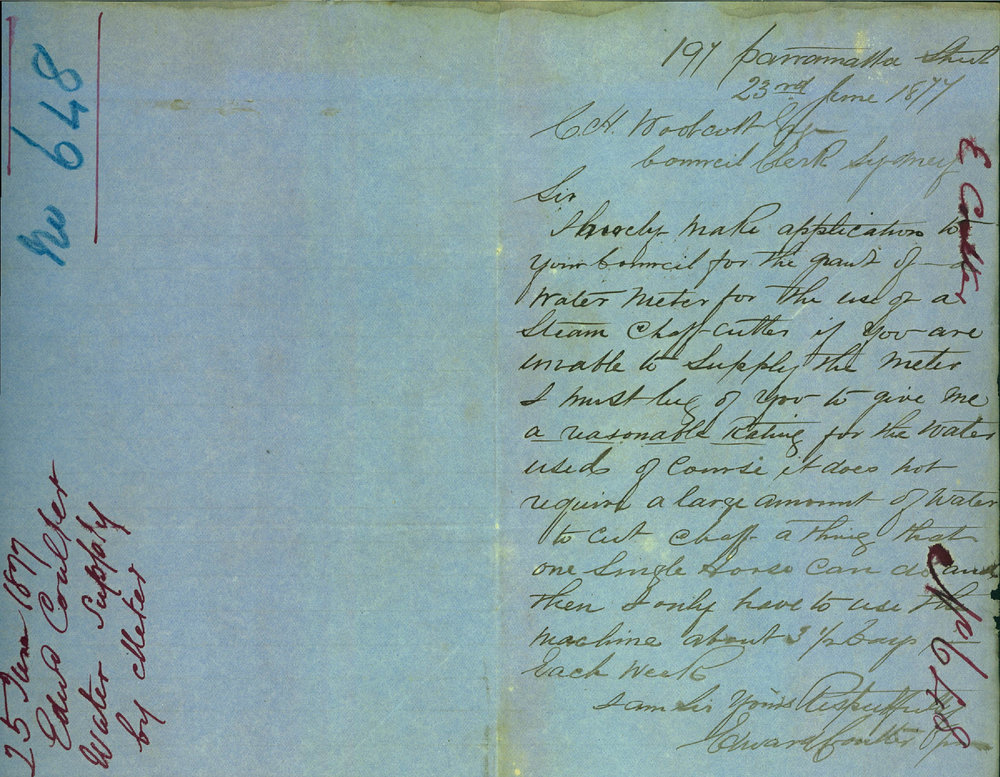 No 648
25 June 1877
Edwd Coulter
Water Supply
by Meter
197 Parramatta Street
23rd June 1877
C H. Woolcott Esq
Council Clerk Sydney
Sir
I herely make application to
your Council for the grant of a
Water Meter for the use of a
Steam Chaff Cutter if you are
unable to Supply the Meter
I must beg of you to give me
a reasonable Rating for the Water
used of Course it does not
require a large amount of Water
to Cut Chaff a thing that
one Single Horse Can do and
then I only have to use the
machine about 3 1/2 Days
Each Week
I am Sir Yours Respectfully
Edward Coulter
E Coulter
No 648